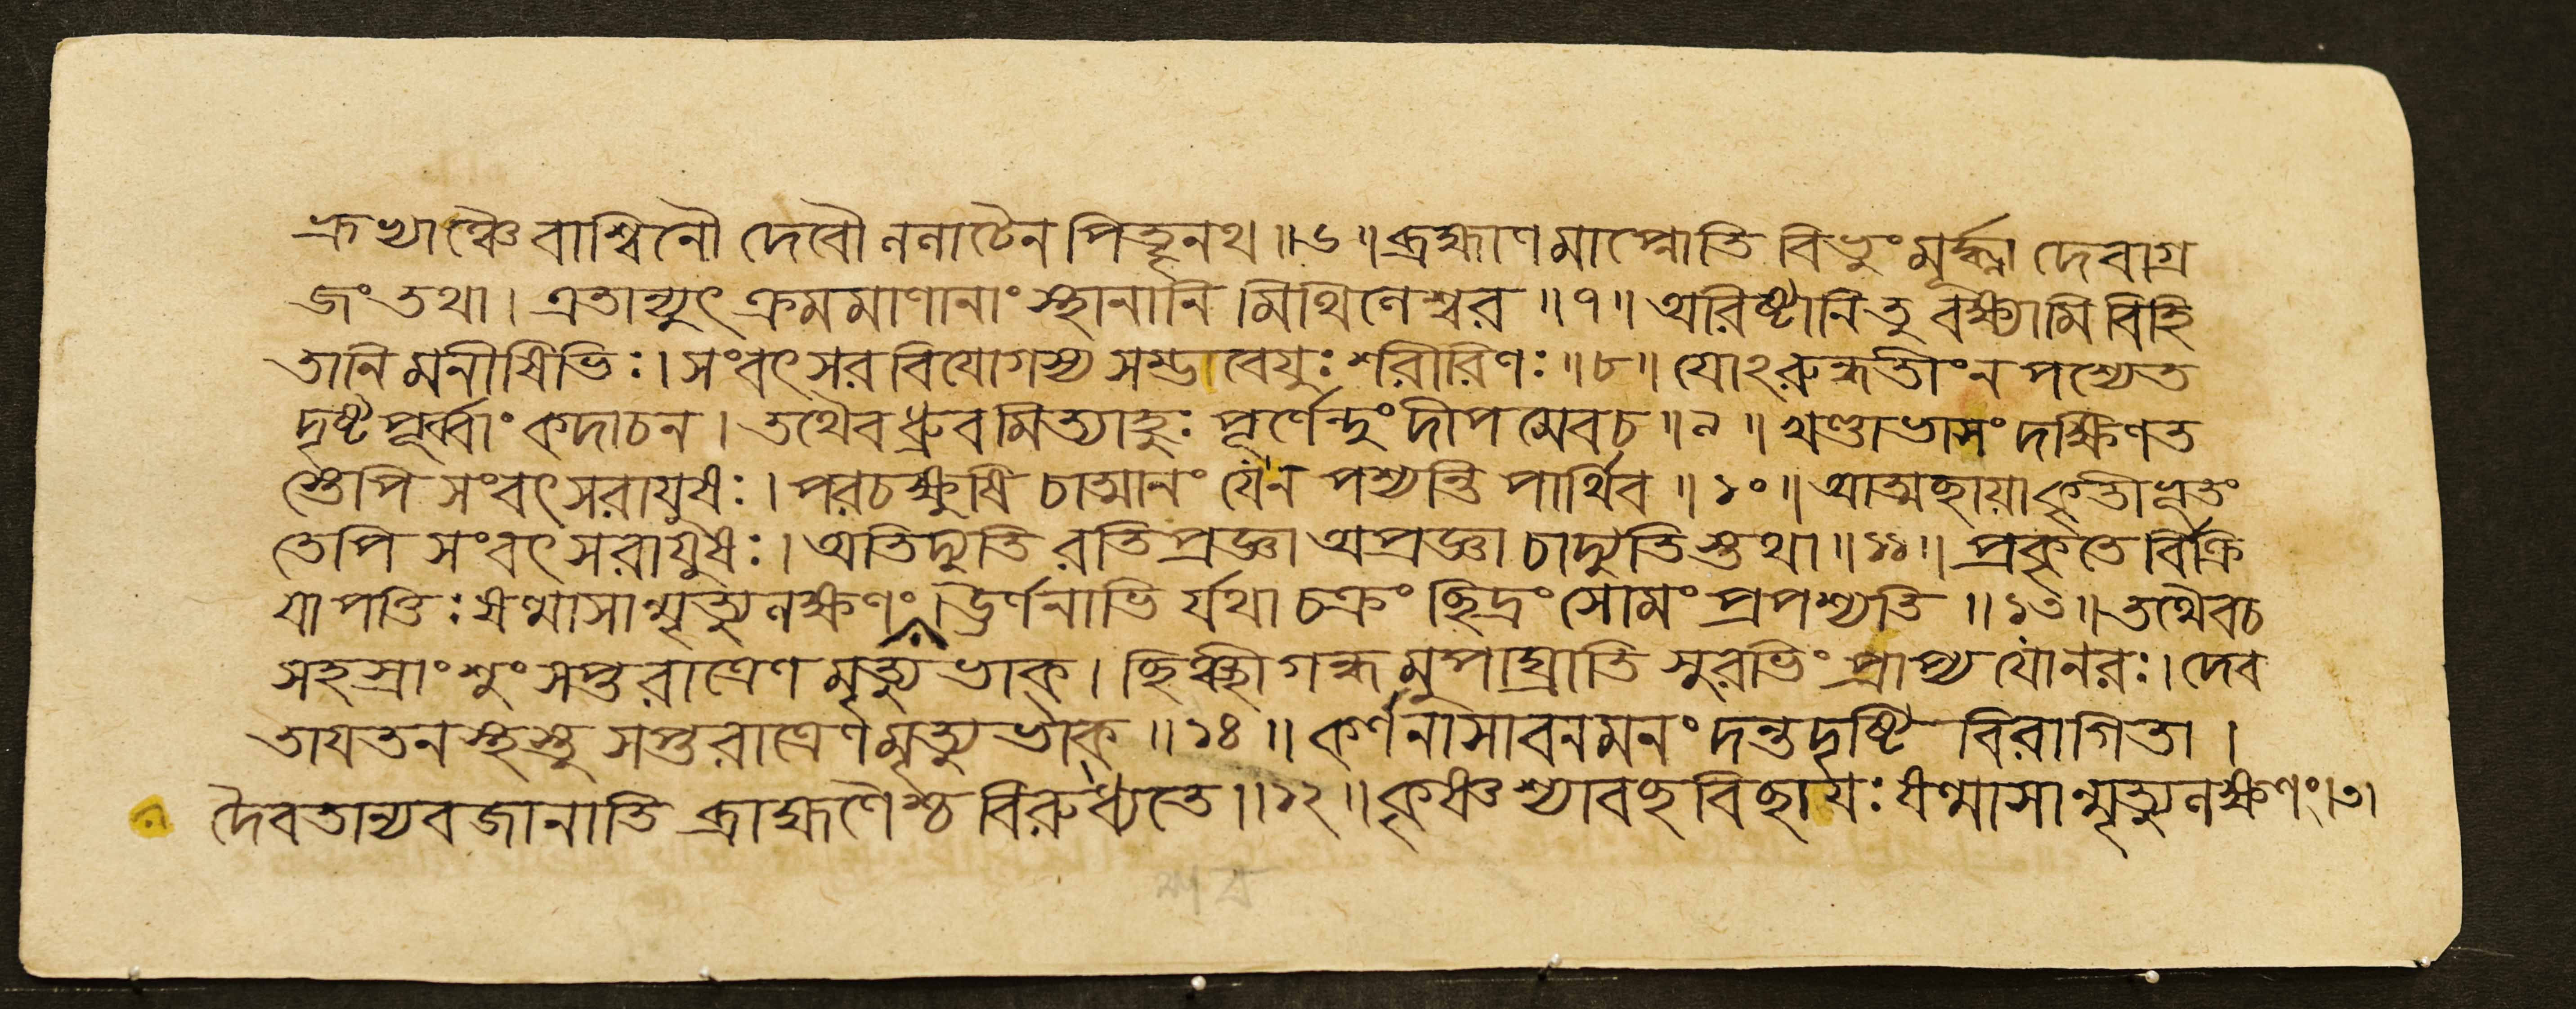 ভ্রুভ্যাঞ্চৈবাশ্বিনৌ দেবৌ ললাটেন পিতৄনথ ॥ ৬ ॥ ব্রহ্মাণমাপ্নোতি বিভুং মূর্দ্ধ্না দেবাগ্র
জং তথা । এতান্যুৎক্রমমাণানাং স্থানানি মিথিলেশ্বর ॥ ৭ ॥ অরিষ্টানি তু বক্ষ্যামি বিহি
তানি মনীষিভিঃ । সংবৎসরবিযোগস্য সম্ভাবেযুঃ শরীরিণঃ ॥ ৮ ॥ যোঽরুন্ধতীং ন পশ্যেত
দৃষ্টপূর্ব্বাং কদাচন । তথৈব ধ্রুবমিত্যাহুঃ পূর্ণেন্দুং দীপমেব চ ॥ ৯ ॥ খণ্ডাভাসং দক্ষিণত
স্তেপি সংবৎসরাযুষঃ । পরচক্ষুষি চাত্মানং যে ন পশ্যন্তি পার্থিব ॥ ১০ ॥ আত্মছায়াকৃতীভূতং
তেপি সংবৎসরাযুষঃ । অতিদ্যুতিরতিপ্রজ্ঞা অপ্রজ্ঞা চাদ্যুতিস্তথা ॥ ১১ ॥ প্রকৃতের্বিক্রি
যাপত্তিঃ ষণ্মাসান্মৃত্যুলক্ষণং । ঊর্ণনাভির্যথা চক্রং ছিদ্রং সোমং প্রপশ্যতি ॥ ১৩ ॥ তথৈব চ
সহস্রাংশুং সপ্তরাত্রেণ মৃত্যুভাক্ । ছিঞ্ছীগন্ধমুপাঘ্রাতি সুরভিং প্রাপ্য যো নরঃ । দেব
তাযতনস্থস্তু সপ্তরাত্রেণ মৃত্যুভাক্ ॥ ১৪ ॥ কর্ণনাসাবনমনং দন্তদৃষ্টি বিরাগিতা ।
দৈবতান্যবজানাতি ব্রাহ্মণৈশ্চ বিরুধ্যতে ॥ ১২ ॥ কৃষ্ণশ্যাবছবিছাযঃ ষণ্মাসান্মৃত্যুলক্ষণং । ৩।